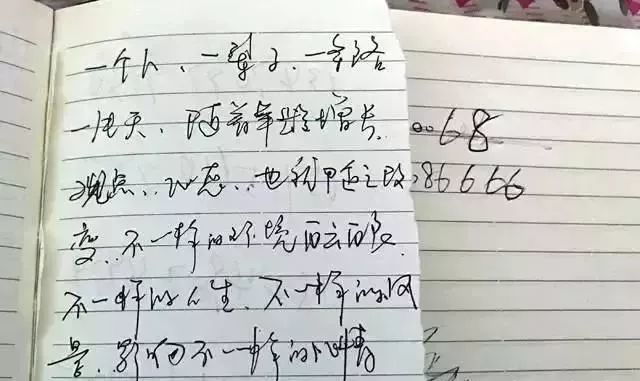 一个人、一辈子、一条路
一片天、随着年龄增长
观点、心态、也和甲之改
变、不一样的环境
不一样的人生、不一样的风
景、影响不一样的心情
68
86666